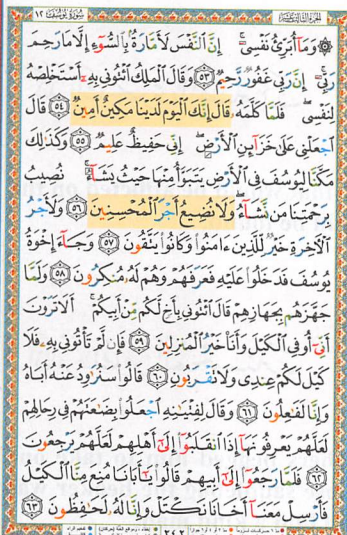 الجزء الثالث عشر سورة يوسف ١٢
۞ وَمَآ أُبَرِّئُ نَفۡسِيٓۚ إِنَّ ٱلنَّفۡسَ لَأَمَّارَةُۢ بِٱلسُّوٓءِ إِلَّا مَا رَحِمَ
رَبِّيٓۚ إِنَّ رَبِّي غَفُورٞ رَّحِيمٞ ٥٣ وَقَالَ ٱلۡمَلِكُ ٱئۡتُونِي بِهِۦٓ أَسۡتَخۡلِصۡهُ
لِنَفۡسِيۖ فَلَمَّا كَلَّمَهُۥ قَالَ إِنَّكَ ٱلۡيَوۡمَ لَدَيۡنَا مَكِينٌ أَمِينٞ ٥٤ قَالَ
ٱجۡعَلۡنِي عَلَىٰ خَزَآئِنِ ٱلۡأَرۡضِۖ إِنِّي حَفِيظٌ عَلِيمٞ ٥٥ وَكَذَٰلِكَ
مَكَّنَّا لِيُوسُفَ فِي ٱلۡأَرۡضِ يَتَبَوَّأُ مِنۡهَا حَيۡثُ يَشَآءُۚ نُصِيبُ
بِرَحۡمَتِنَا مَن نَّشَآءُۖ وَلَا نُضِيعُ أَجۡرَ ٱلۡمُحۡسِنِينَ ٥٦ وَلَأَجۡرُ
ٱلۡأٓخِرَةِ خَيۡرٞ لِّلَّذِينَ ءَامَنُواْ وَكَانُواْ يَتَّقُونَ ٥٧ وَجَآءَ إِخۡوَةُ
يُوسُفَ فَدَخَلُواْ عَلَيۡهِ فَعَرَفَهُمۡ وَهُمۡ لَهُۥ مُنكِرُونَ ٥٨ وَلَمَّا
جَهَّزَهُم بِجَهَازِهِمۡ قَالَ ٱئۡتُونِي بِأَخٖ لَّكُم مِّنۡ أَبِيكُمۡۚ أَلَا تَرَوۡنَ
أَنِّيٓ أُوفِي ٱلۡكَيۡلَ وَأَنَا۠ خَيۡرُ ٱلۡمُنزِلِينَ ٥٩ فَإِن لَّمۡ تَأۡتُونِي بِهِۦ فَلَا
كَيۡلَ لَكُمۡ عِندِي وَلَا تَقۡرَبُونِ ٦٠ قَالُواْ سَنُرَٰوِدُ عَنۡهُ أَبَاهُ
وَإِنَّا لَفَٰعِلُونَ ٦١ وَقَالَ لِفِتۡيَٰنِهِ ٱجۡعَلُواْ بِضَٰعَتَهُمۡ فِي رِحَالِهِمۡ
لَعَلَّهُمۡ يَعۡرِفُونَهَآ إِذَا ٱنقَلَبُوٓاْ إِلَىٰٓ أَهۡلِهِمۡ لَعَلَّهُمۡ يَرۡجِعُونَ
٦٢ فَلَمَّا رَجَعُوٓاْ إِلَىٰٓ أَبِيهِمۡ قَالُواْ يَٰٓأَبَانَا مُنِعَ مِنَّا ٱلۡكَيۡلُ
فَأَرۡسِلۡ مَعَنَآ أَخَانَا نَكۡتَلۡ وَإِنَّا لَهُۥ لَحَٰفِظُونَ ٦٣